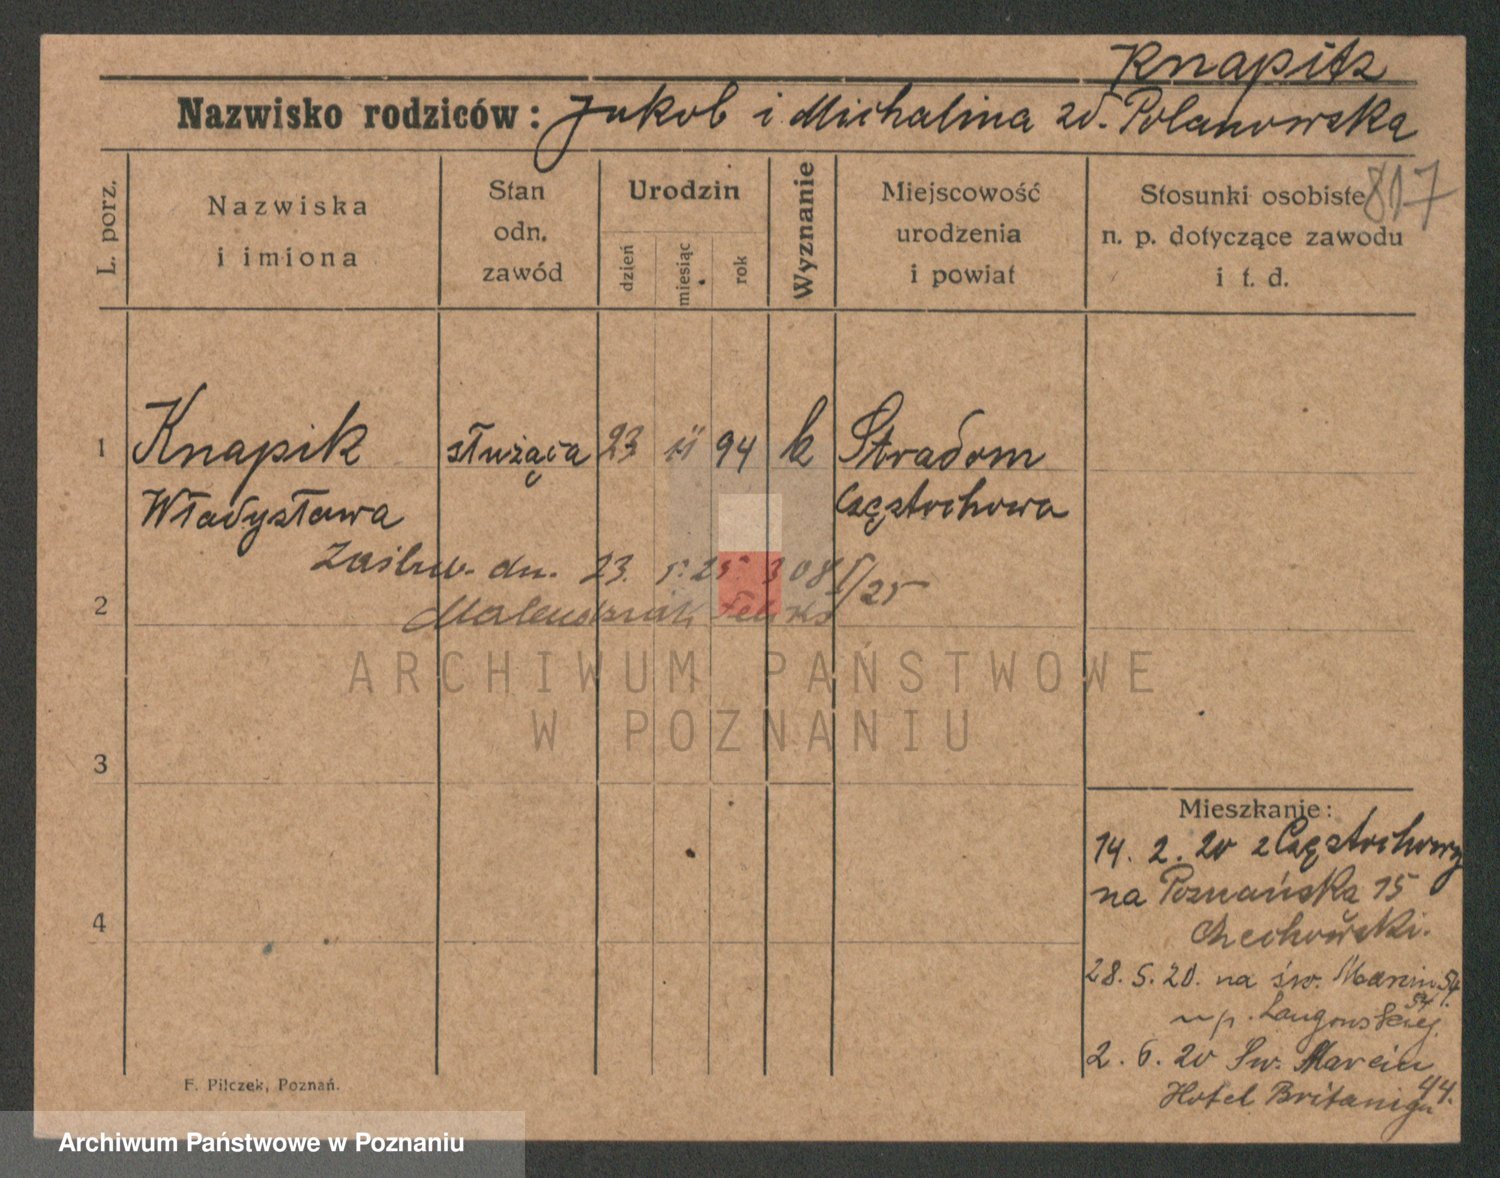 Knapik
Nazwisko rodziców: Jakob i Michalina zd. Polanowska
817
L. porz.
Nazwiska
i imiona
Stan
odn.
zawód
Urodzin
dzień
miesiąc
rok
Wyznanie
Miejscowość
urodzenia
i powiat
Stosunki osobiste
n. p. dotyczące zawodu
i t. d.
1
Knapik służąca 23 94 k Stradom
Władysława Częstochowa
Zaślub. dn. 23. 25. 308 /25
2
Feliks
ARCHIWUM PAŃSTWOWE
W POZNANIU
3
Mieszkanie:
14. 2. 20 z Częstochowy
na Poznańska 15
4
28. 5. 20. na św. Marcin 54.
54
u p.
2. 6. 20 Św. Marcin
44.
Hotel Britania
F. Pilczek, Poznań.
Archiwum Państwowe w Poznaniu